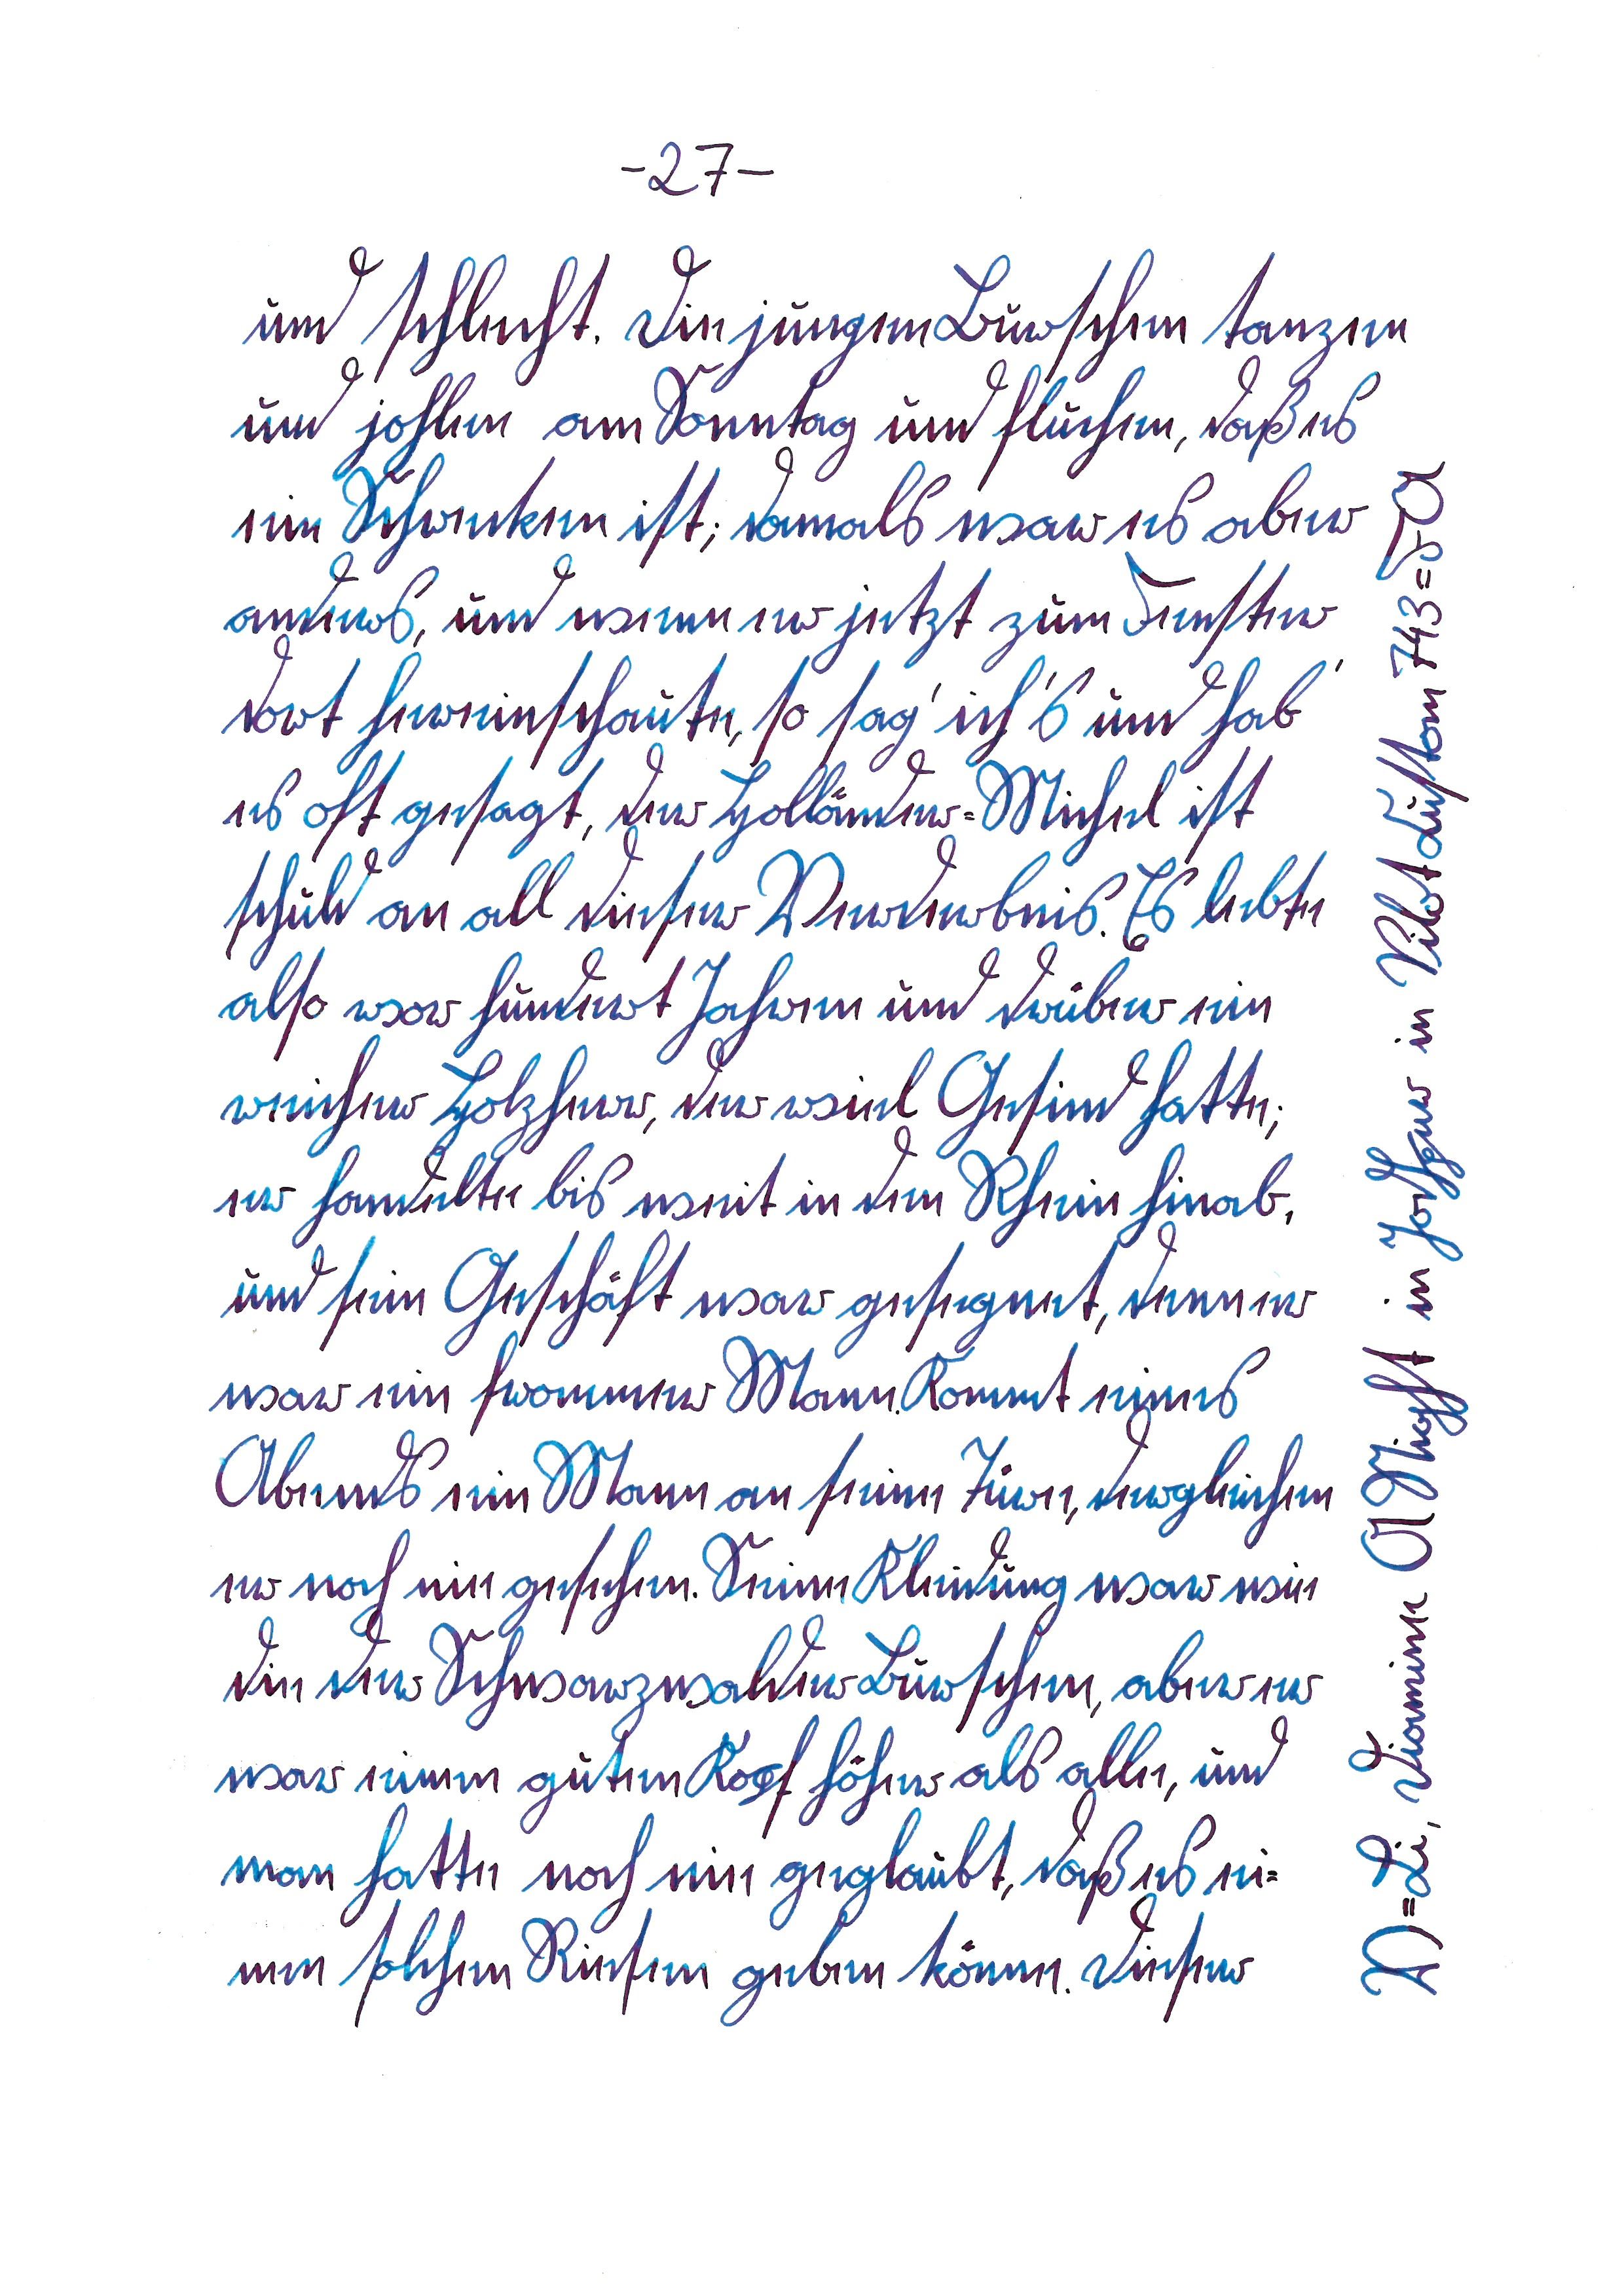 -27-
und schlecht. Die jungen Burschen tanzen
und johlen am Sonntag und fluchen, daß es
ein Schrecken ist; damals war es aber
anders, und wenn er jetzt zum Fenster
dort hereinschaute, so sag' ich's und hab'
es oft gesagt, der Holländer=Michel ist
schuld an all dieser Verderbnis. Es lebte
also vor hundert Jahren und drüber ein
reicher Holzherr, der viel Gesind hatte;
er handelte bis weit in den Rhein hinab,
und sein Geschäft war gesegnet, denn er
war ein frommer Mann. Kommt eines
Abends ein Mann an seine Türe, dergleichen
er noch nie gesehen. Seine Kleidung war wie
die der Schwarzwalder Burschen, aber er
war einen guten Kopf höher als alle, und
man hatte noch nie geglaubt, daß es ei=
nen solchen Riesen geben könne. Dieser
Diamine A Night in in Pilot Custom 743=FA